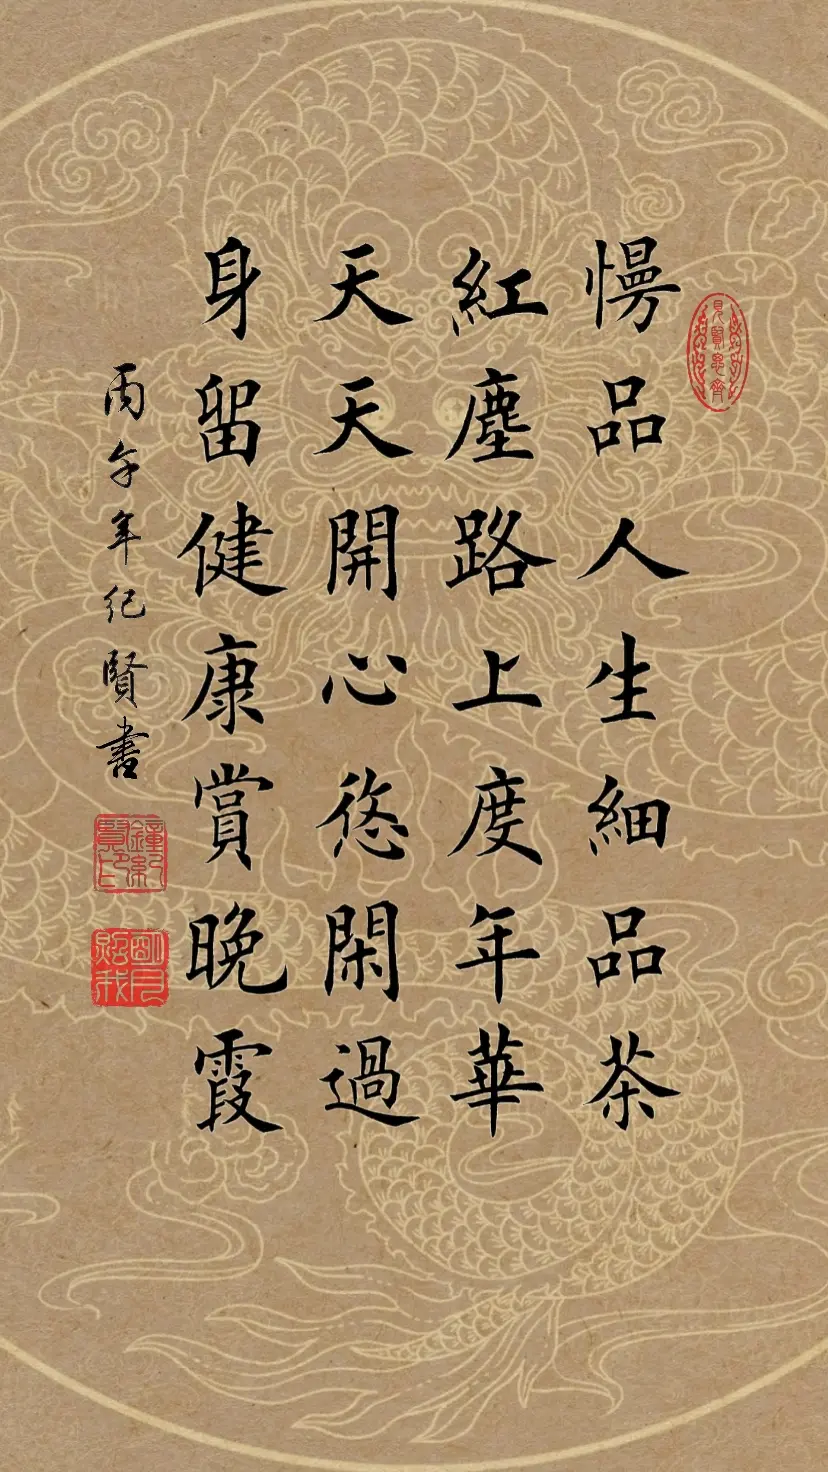 慢品人生細品茶
紅塵路上度年華
天天開心悠閑過
身留健康賞晚霞
丙午年纪賢書
見賢思齊
鐘紀賢印